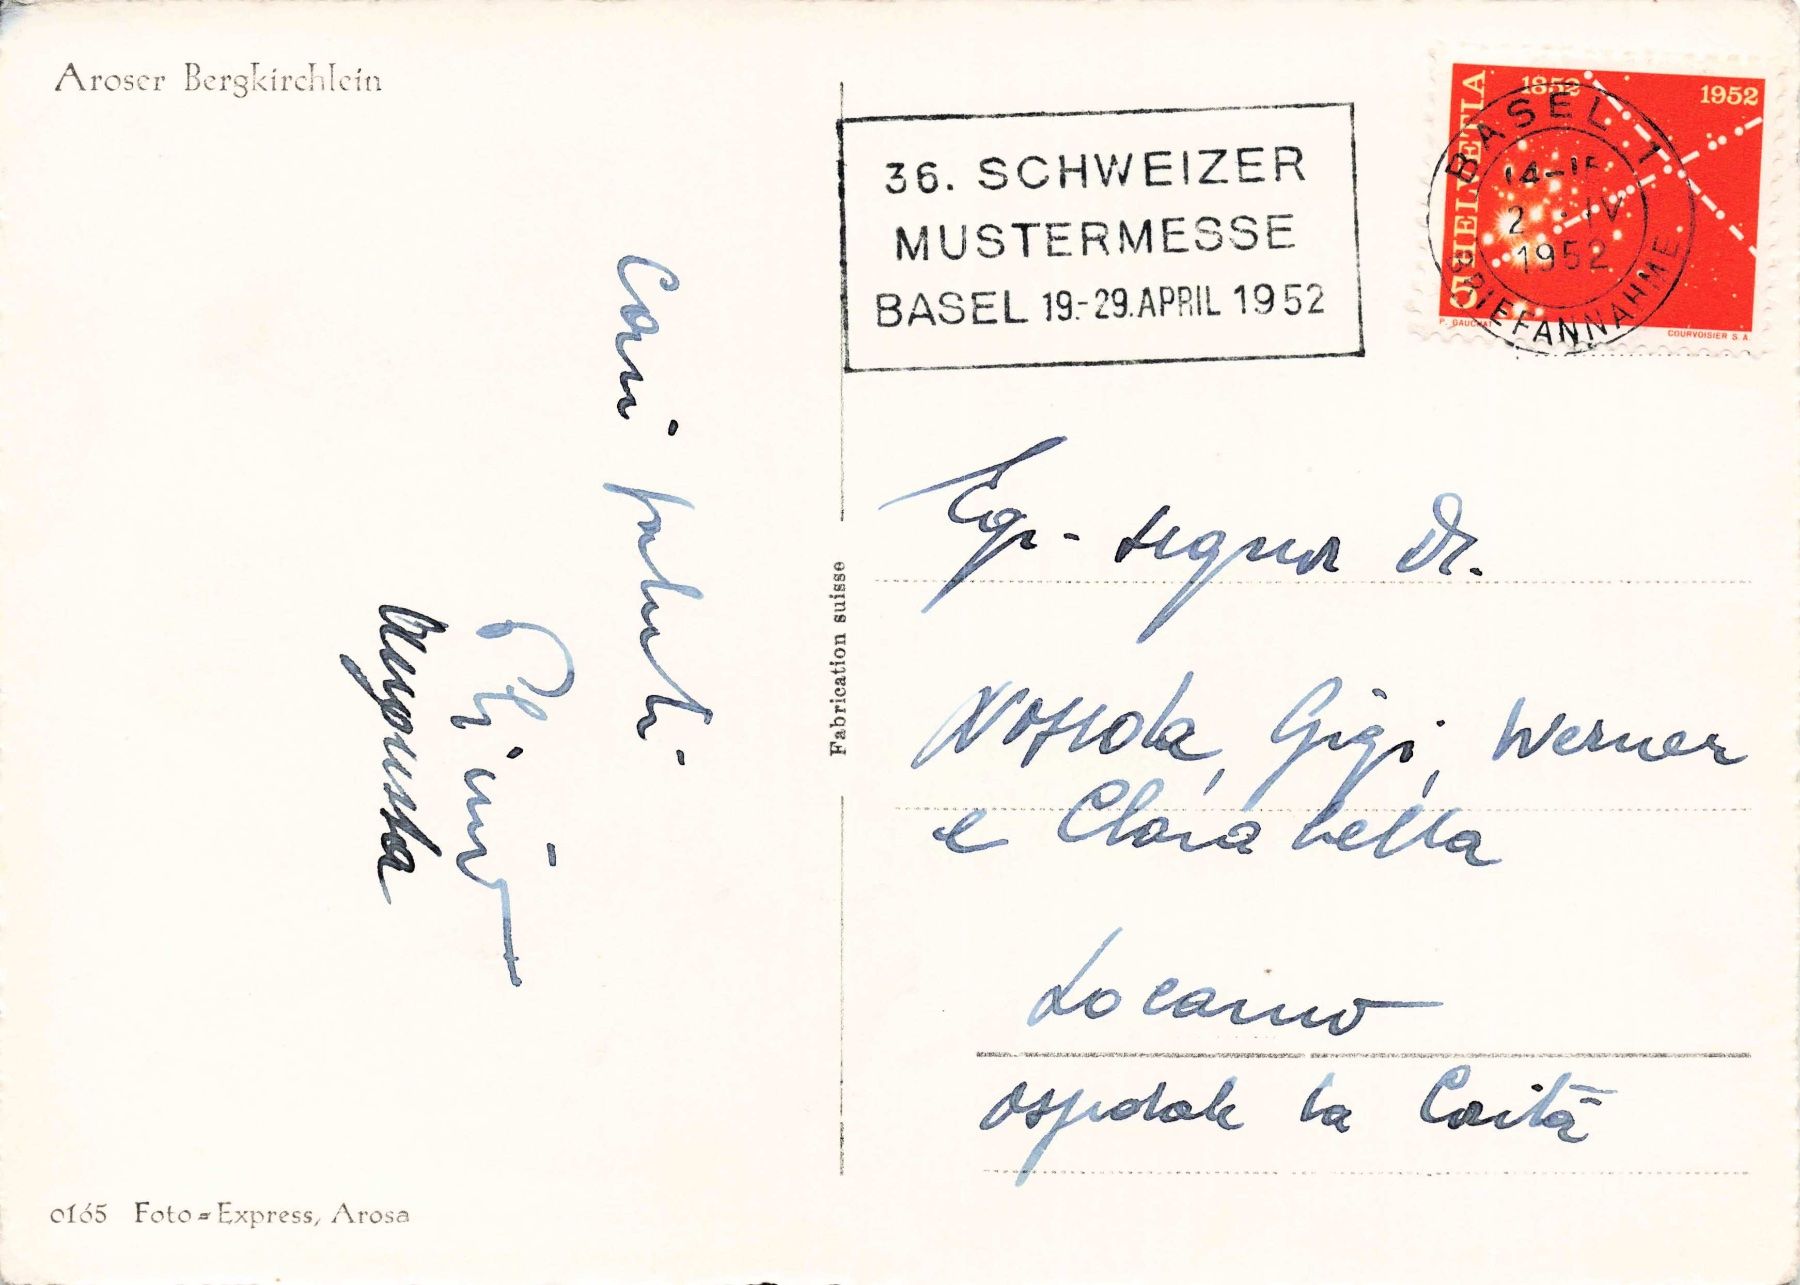 Aroser Bergkirchlein
36. SCHWEIZER
MUSTERMESSE
BASEL 19.-29. APRIL 1952
HELVETIA
1852
1952
BASEL 1
14-15
2. IV
1952
BRIEFANNAHME
P. GAUCHAT
COURVOISIER S.A.
Cari saluti
Plinio
Augousta
Fabrication suisse
Egr. signor Dr.
Nossola, Gigi, Werner
e Clarabella
Locarno
Ospedale la Carità
0165 Foto-Express, Arosa